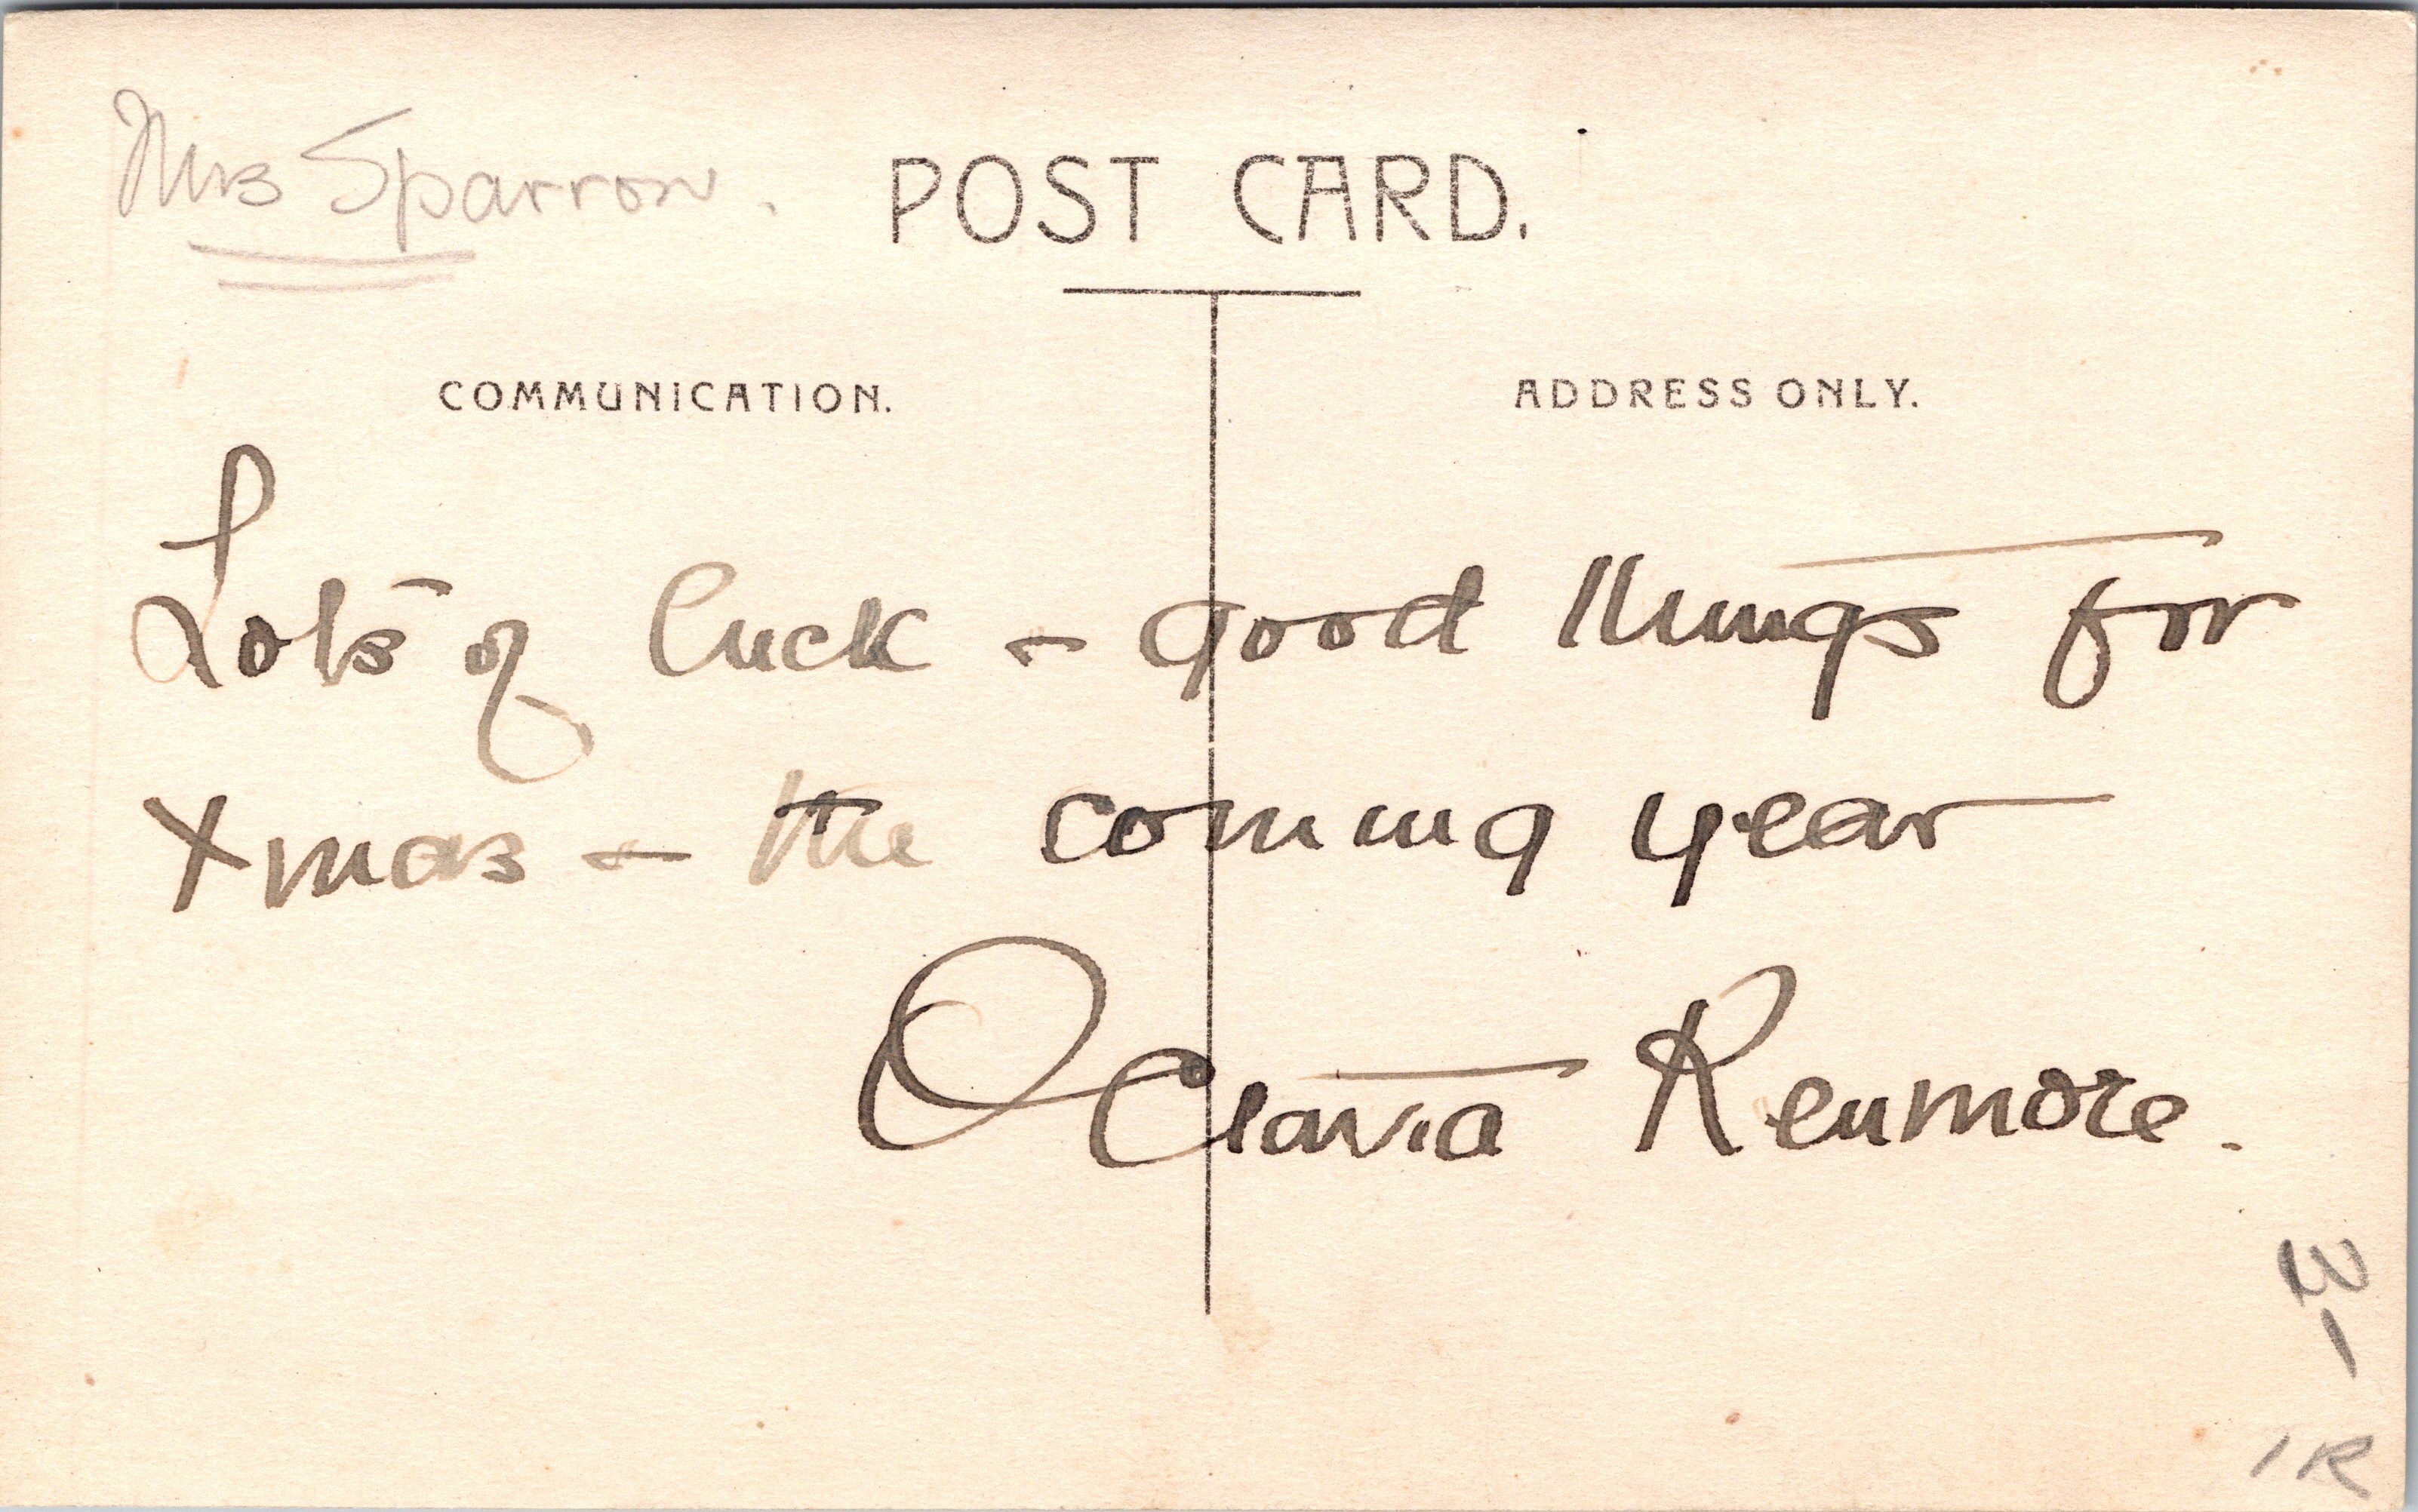 Mrs Sparrow.
POST CARD.
COMMUNICATION.
ADDRESS ONLY.
Lots of luck - good things for
Xmas - the coming year
Octavia Kenmore.